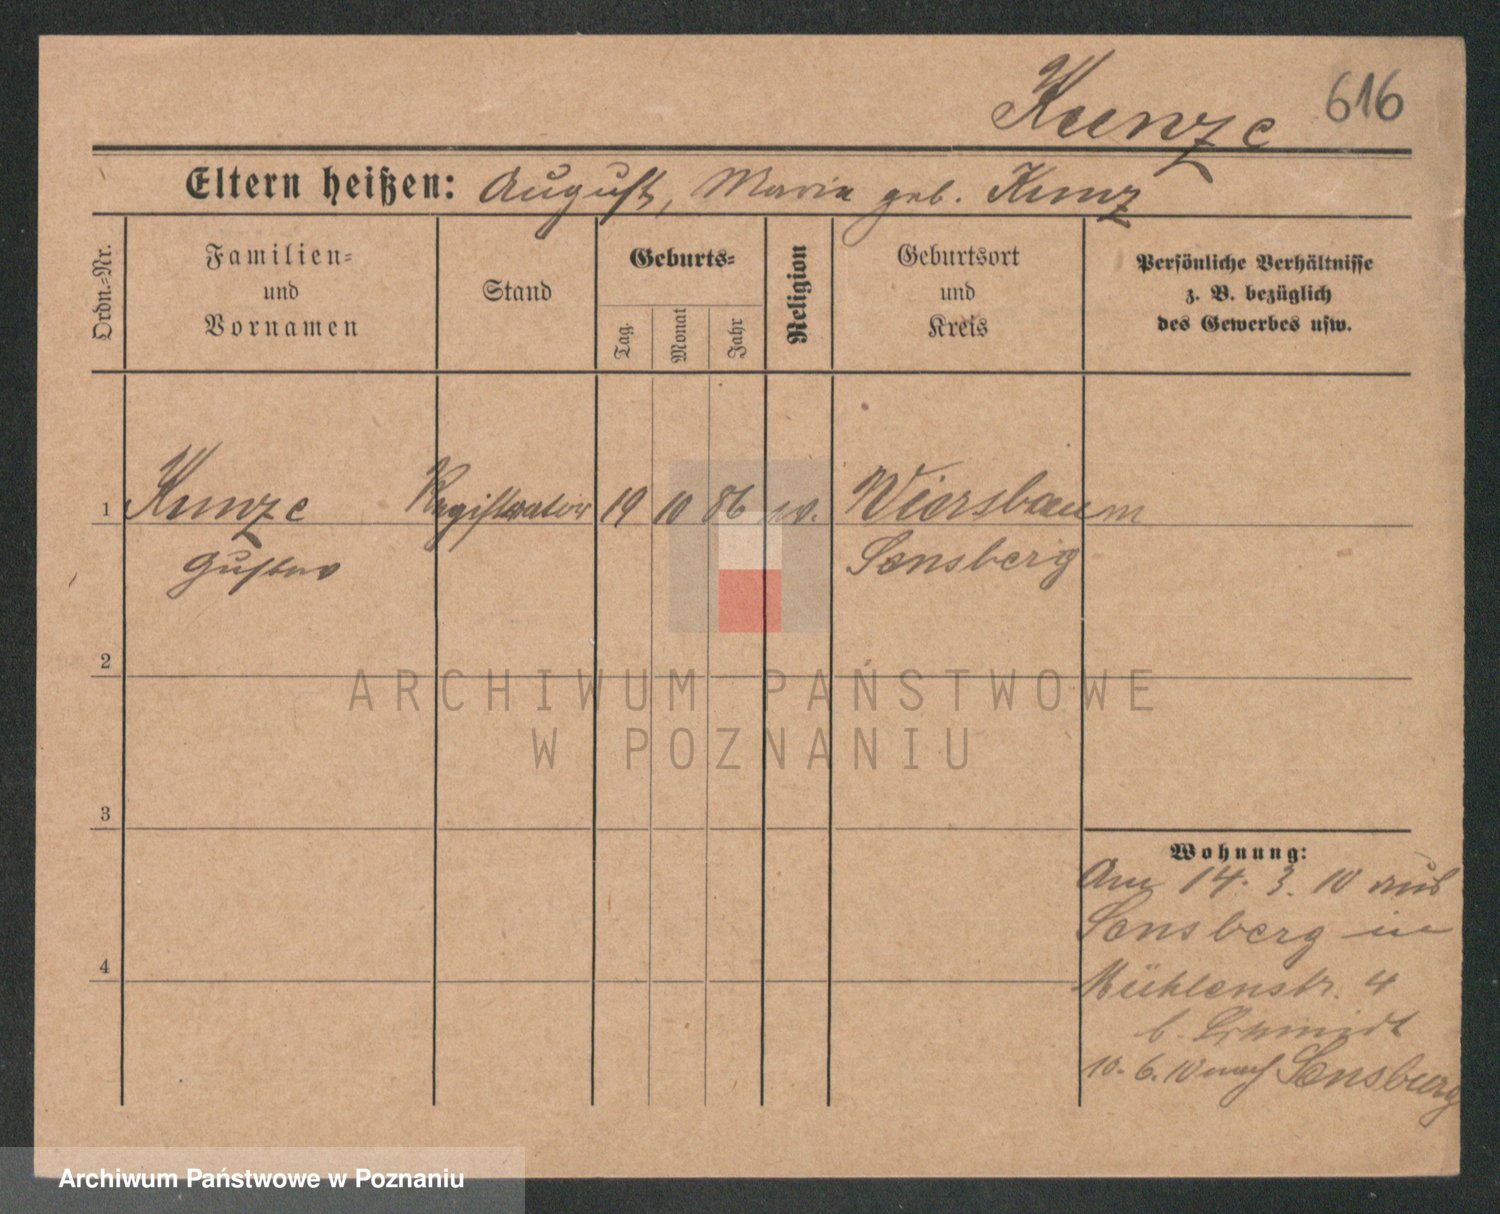 Kunze 616
Eltern heißen: August, Maria geb. Kunz
Ordn.-Nr.
Familien-
und
Vornamen
Stand
Geburts-
Tag.
Monat
Jahr
Religion
Geburtsort
und
Kreis
Persönliche Verhältnisse
z. B. bezüglich
des Gewerbes usw.
1 Kunze Registrator 19 10 86 ev. Wiersbaum
Gustav Sensberg
2
ARCHIWUM PAŃSTWOWE
W POZNANIU
3
Wohnung:
Am 14. 3. 10 aus
Sensberg in
4
Mühlenstr. 4
b. Schmidt
10. 6. 10 nach Sensburg
Archiwum Państwowe w Poznaniu